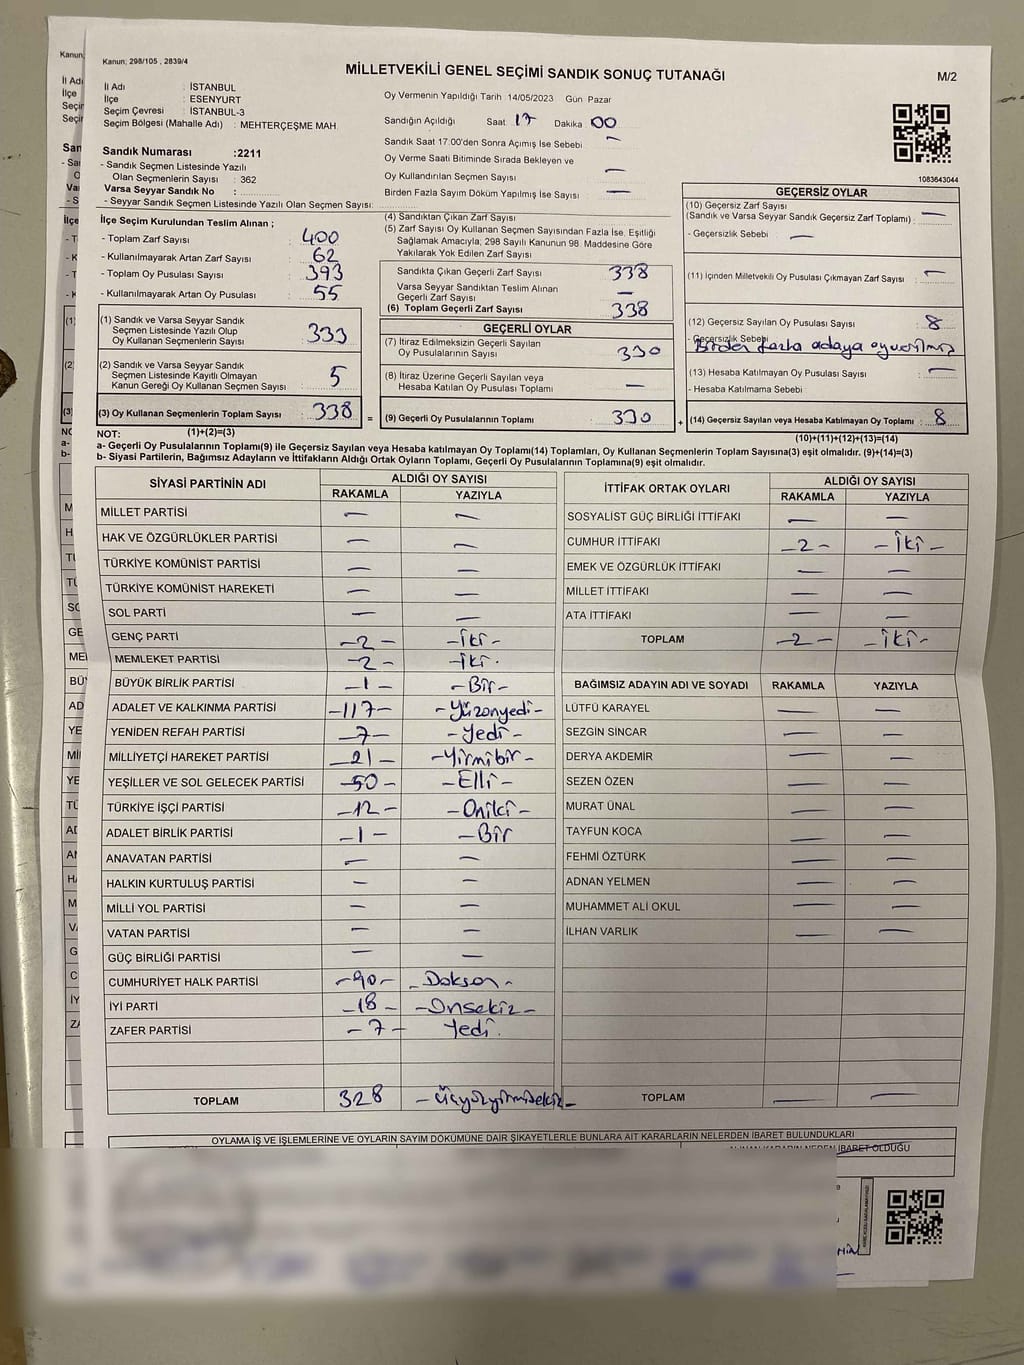 Kanun; 298/105 , 2839/4
MİLLETVEKİLİ GENEL SEÇİMİ SANDIK SONUÇ TUTANAĞI
M/2
İl Adı : İSTANBUL
İlçe : ESENYURT
Seçim Çevresi : İSTANBUL-3
Seçim Bölgesi (Mahalle Adı) : MEHTERÇEŞME MAH
Sandık Numarası :2211
- Sandık Seçmen Listesinde Yazılı
Olan Seçmenlerin Sayısı : 362
Varsa Seyyar Sandık No :
- Seyyar Sandık Seçmen Listesinde Yazılı Olan Seçmen Sayısı:
Oy Vermenin Yapıldığı Tarih : 14/05/2023 Gün Pazar
Sandığın Açıldığı Saat 17 Dakika 00
Sandık Saat 17:00'den Sonra Açımış İse Sebebi : —
Oy Verme Saati Bitiminde Sırada Bekleyen ve
Oy Kullandırılan Seçmen Sayısı : —
Birden Fazla Sayım Döküm Yapılmış İse Sayısı : —
1083643044
İlçe Seçim Kurulundan Teslim Alınan ;
- Toplam Zarf Sayısı : 400
- Kullanılmayarak Artan Zarf Sayısı : 62
- Toplam Oy Pusulası Sayısı : 393
- Kullanılmayarak Artan Oy Pusulası : 55
(1) Sandık ve Varsa Seyyar Sandık
Seçmen Listesinde Yazılı Olup
Oy Kullanan Seçmenlerin Sayısı : 333
(2) Sandık ve Varsa Seyyar Sandık
Seçmen Listesinde Kayıtlı Olmayan
Kanun Gereği Oy Kullanan Seçmen Sayısı : 5
(3) Oy Kullanan Seçmenlerin Toplam Sayısı : 338
(1)+(2)=(3)
(4) Sandıktan Çıkan Zarf Sayısı
(5) Zarf Sayısı Oy Kullanan Seçmen Sayısından Fazla İse, Eşitliği
Sağlamak Amacıyla; 298 Sayılı Kanunun 98. Maddesine Göre
Yakılarak Yok Edilen Zarf Sayısı
Sandıkta Çıkan Geçerli Zarf Sayısı : 338
Varsa Seyyar Sandıktan Teslim Alınan
Geçerli Zarf Sayısı : —
(6) Toplam Geçerli Zarf Sayısı : 338
GEÇERLİ OYLAR
(7) İtiraz Edilmeksizin Geçerli Sayılan
Oy Pusulalarının Sayısı : 330
(8) İtiraz Üzerine Geçerli Sayılan veya
Hesaba Katılan Oy Pusulası Toplamı : —
= (9) Geçerli Oy Pusulalarının Toplamı : 330
GEÇERSİZ OYLAR
(10) Geçersiz Zarf Sayısı
(Sandık ve Varsa Seyyar Sandık Geçersiz Zarf Toplamı) : —
- Geçersizlik Sebebi : —
(11) İçinden Milletvekili Oy Pusulası Çıkmayan Zarf Sayısı : —
(12) Geçersiz Sayılan Oy Pusulası Sayısı : 8
- Geçersizlik Sebebi : Birden fazla adaya oy verilmiş
(13) Hesaba Katılmayan Oy Pusulası Sayısı : —
- Hesaba Katılmama Sebebi
+ (14) Geçersiz Sayılan veya Hesaba Katılmayan Oy Toplamı : 8
(10)+(11)+(12)+(13)=(14)
NOT:
a- Geçerli Oy Pusulalarının Toplamı(9) ile Geçersiz Sayılan veya Hesaba katılmayan Oy Toplamı(14) Toplamları, Oy Kullanan Seçmenlerin Toplam Sayısına(3) eşit olmalıdır. (9)+(14)=(3)
b- Siyasi Partilerin, Bağımsız Adayların ve İttifakların Aldığı Ortak Oyların Toplamı, Geçerli Oy Pusulalarının Toplamına(9) eşit olmalıdır.
SİYASİ PARTİNİN ADI ALDIĞI OY SAYISI
RAKAMLA YAZIYLA
MİLLET PARTİSİ — —
HAK VE ÖZGÜRLÜKLER PARTİSİ — —
TÜRKİYE KOMÜNİST PARTİSİ — —
TÜRKİYE KOMÜNİST HAREKETİ — —
SOL PARTİ — —
GENÇ PARTİ -2- -İki-
MEMLEKET PARTİSİ -2- -İki-
BÜYÜK BİRLİK PARTİSİ -1- -Bir-
ADALET VE KALKINMA PARTİSİ -117- -Yüzonyedi-
YENİDEN REFAH PARTİSİ -7- -Yedi-
MİLLİYETÇİ HAREKET PARTİSİ -21- -Yirmibir-
YEŞİLLER VE SOL GELECEK PARTİSİ -50- -Elli-
TÜRKİYE İŞÇİ PARTİSİ -12- -Oniki-
ADALET BİRLİK PARTİSİ -1- -Bir
ANAVATAN PARTİSİ — —
HALKIN KURTULUŞ PARTİSİ — —
MİLLİ YOL PARTİSİ — —
VATAN PARTİSİ — —
GÜÇ BİRLİĞİ PARTİSİ — —
CUMHURİYET HALK PARTİSİ -90- -Doksan-
İYİ PARTİ -18- -Onsekiz-
ZAFER PARTİSİ -7- Yedi.
TOPLAM 328 -Üçyüzyirmisekiz-
İTTİFAK ORTAK OYLARI ALDIĞI OY SAYISI
RAKAMLA YAZIYLA
SOSYALİST GÜÇ BİRLİĞİ İTTİFAKI — —
CUMHUR İTTİFAKI -2- -İki-
EMEK VE ÖZGÜRLÜK İTTİFAKI — —
MİLLET İTTİFAKI — —
ATA İTTİFAKI — —
TOPLAM -2- -İki-
BAĞIMSIZ ADAYIN ADI VE SOYADI RAKAMLA YAZIYLA
LÜTFÜ KARAYEL — —
SEZGİN SİNCAR — —
DERYA AKDEMİR — —
SEZEN ÖZEN — —
MURAT ÜNAL — —
TAYFUN KOCA — —
FEHMİ ÖZTÜRK — —
ADNAN YELMEN — —
MUHAMMET ALİ OKUL — —
İLHAN VARLIK — —
TOPLAM — —
OYLAMA İŞ VE İŞLEMLERİNE VE OYLARIN SAYIM DÖKÜMÜNE DAİR ŞİKAYETLERLE BUNLARA AİT KARARLARIN NELERDEN İBARET BULUNDUKLARI
İBARET OLDUĞU